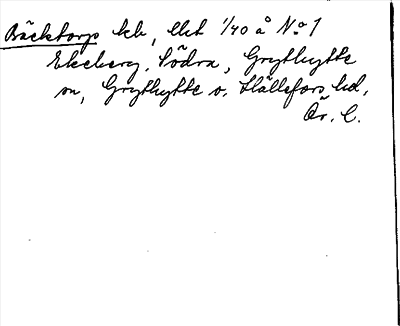 Bäcktorp lh, lht 1/40 å No 1
Ekeberg, Södra, Grythytte
sn, Grythytte o. Hällefors hd,
Ör. l.